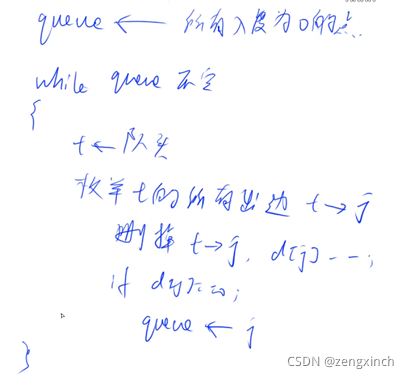 queue ← 所有入度为0的点.
while queue 不空
{
t ← 队头
枚举 t的所有出边 t→j
删掉 t→j, d[j]--;
if d[j]==0;
queue ← j
}
CSDN @zengxinch